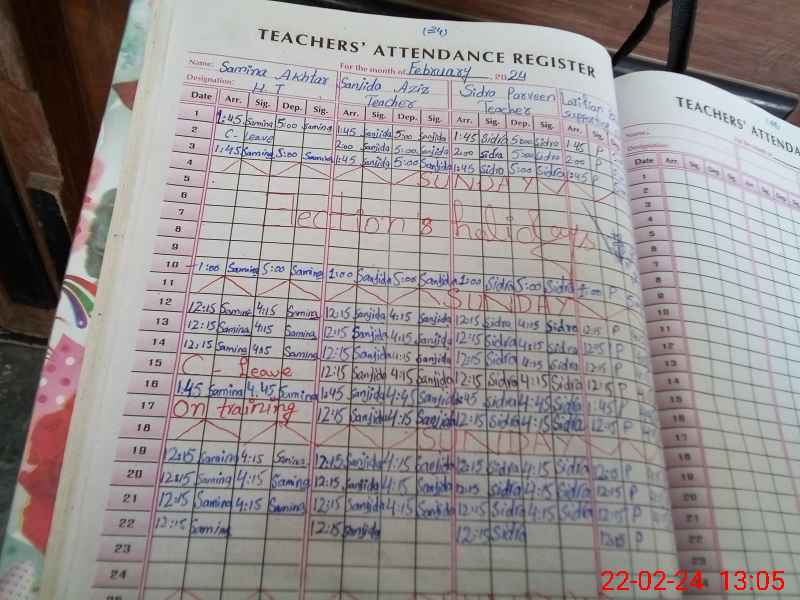 (34)
TEACHERS' ATTENDANCE REGISTER
Name: Samina Akhtar For the month of February, 2024
Designation: H T Sanjida Aziz Teacher Sidra Parveen Teacher
Date Arr. Sig. Dep. Sig. Arr. Sig. Dep. Sig. Arr. Sig. Dep. Sig. Arr. Sig.
1 1:45 Samina 5:00 Samina 1:45 Sanjida 5:00 Sanjida 1:45 Sidra 5:00 Sidra 1:45 P
2 C- leave 2:00 Sanjida 5:00 Sanjida 2:00 Sidra 5:00 Sidra 2:00 P
3 1:45 Samina 5:00 Samina 1:45 Sanjida 5:00 Sanjida 1:45 Sidra 5:00 Sidra 1:45 P
4 SUNDAY
5
6
7 Election's holidays
8
9
10 1:00 Samina 5:00 Samina 1:00 Sanjida 5:00 Sanjida 1:00 Sidra 5:00 Sidra 1:00 P
11 SUNDAY
12 12:15 Samina 4:15 Samina 12:15 Sanjida 4:15 Sanjida 12:15 Sidra 4:15 Sidra 12:15 P
13 12:15 Samina 4:15 Samina 12:15 Sanjida 4:15 Sanjida 12:15 Sidra 4:15 Sidra 12:15 P
14 12:15 Samina 4:15 Samina 12:15 Sanjida 4:15 Sanjida 12:15 Sidra 4:15 Sidra 12:15 P
15 C - leave 12:15 Sanjida 4:15 Sanjida 12:15 Sidra 4:15 Sidra 12:15 P
16 1:45 Samina 4:45 Samina 1:45 Sanjida 4:45 Sanjida 1:45 Sidra 4:45 Sidra 1:45
17 On training 12:15 Sanjida 4:15 Sanjida 12:15 Sidra 4:15 Sidra 12:15 P
18 SUNDAY
19 12:15 Samina 4:15 Samina 12:15 Sanjida 4:15 Sanjida 12:15 Sidra 4:15 Sidra 12:15 P
20 12:15 Samina 4:15 Samina 12:15 Sanjida 4:15 Sanjida 12:15 Sidra 4:15 Sidra 12:15 P
21 12:15 Samina 4:15 Samina 12:15 Sanjida 4:15 Sanjida 12:15 Sidra 4:15 Sidra 12:15 P
22 12:15 Samina 12:15 Sanjida 12:15 Sidra 12:15 P
23
24
TEACHERS' ATTENDA
Name:
Designation:
Date Arr. Sig. Dep. Sig. Arr. Sig. Dep. Sig.
1
2
3
4
5
6
7
8
9
10
11
12
13
14
15
16
17
18
19
20
21
22
23
22-02-24 13:05